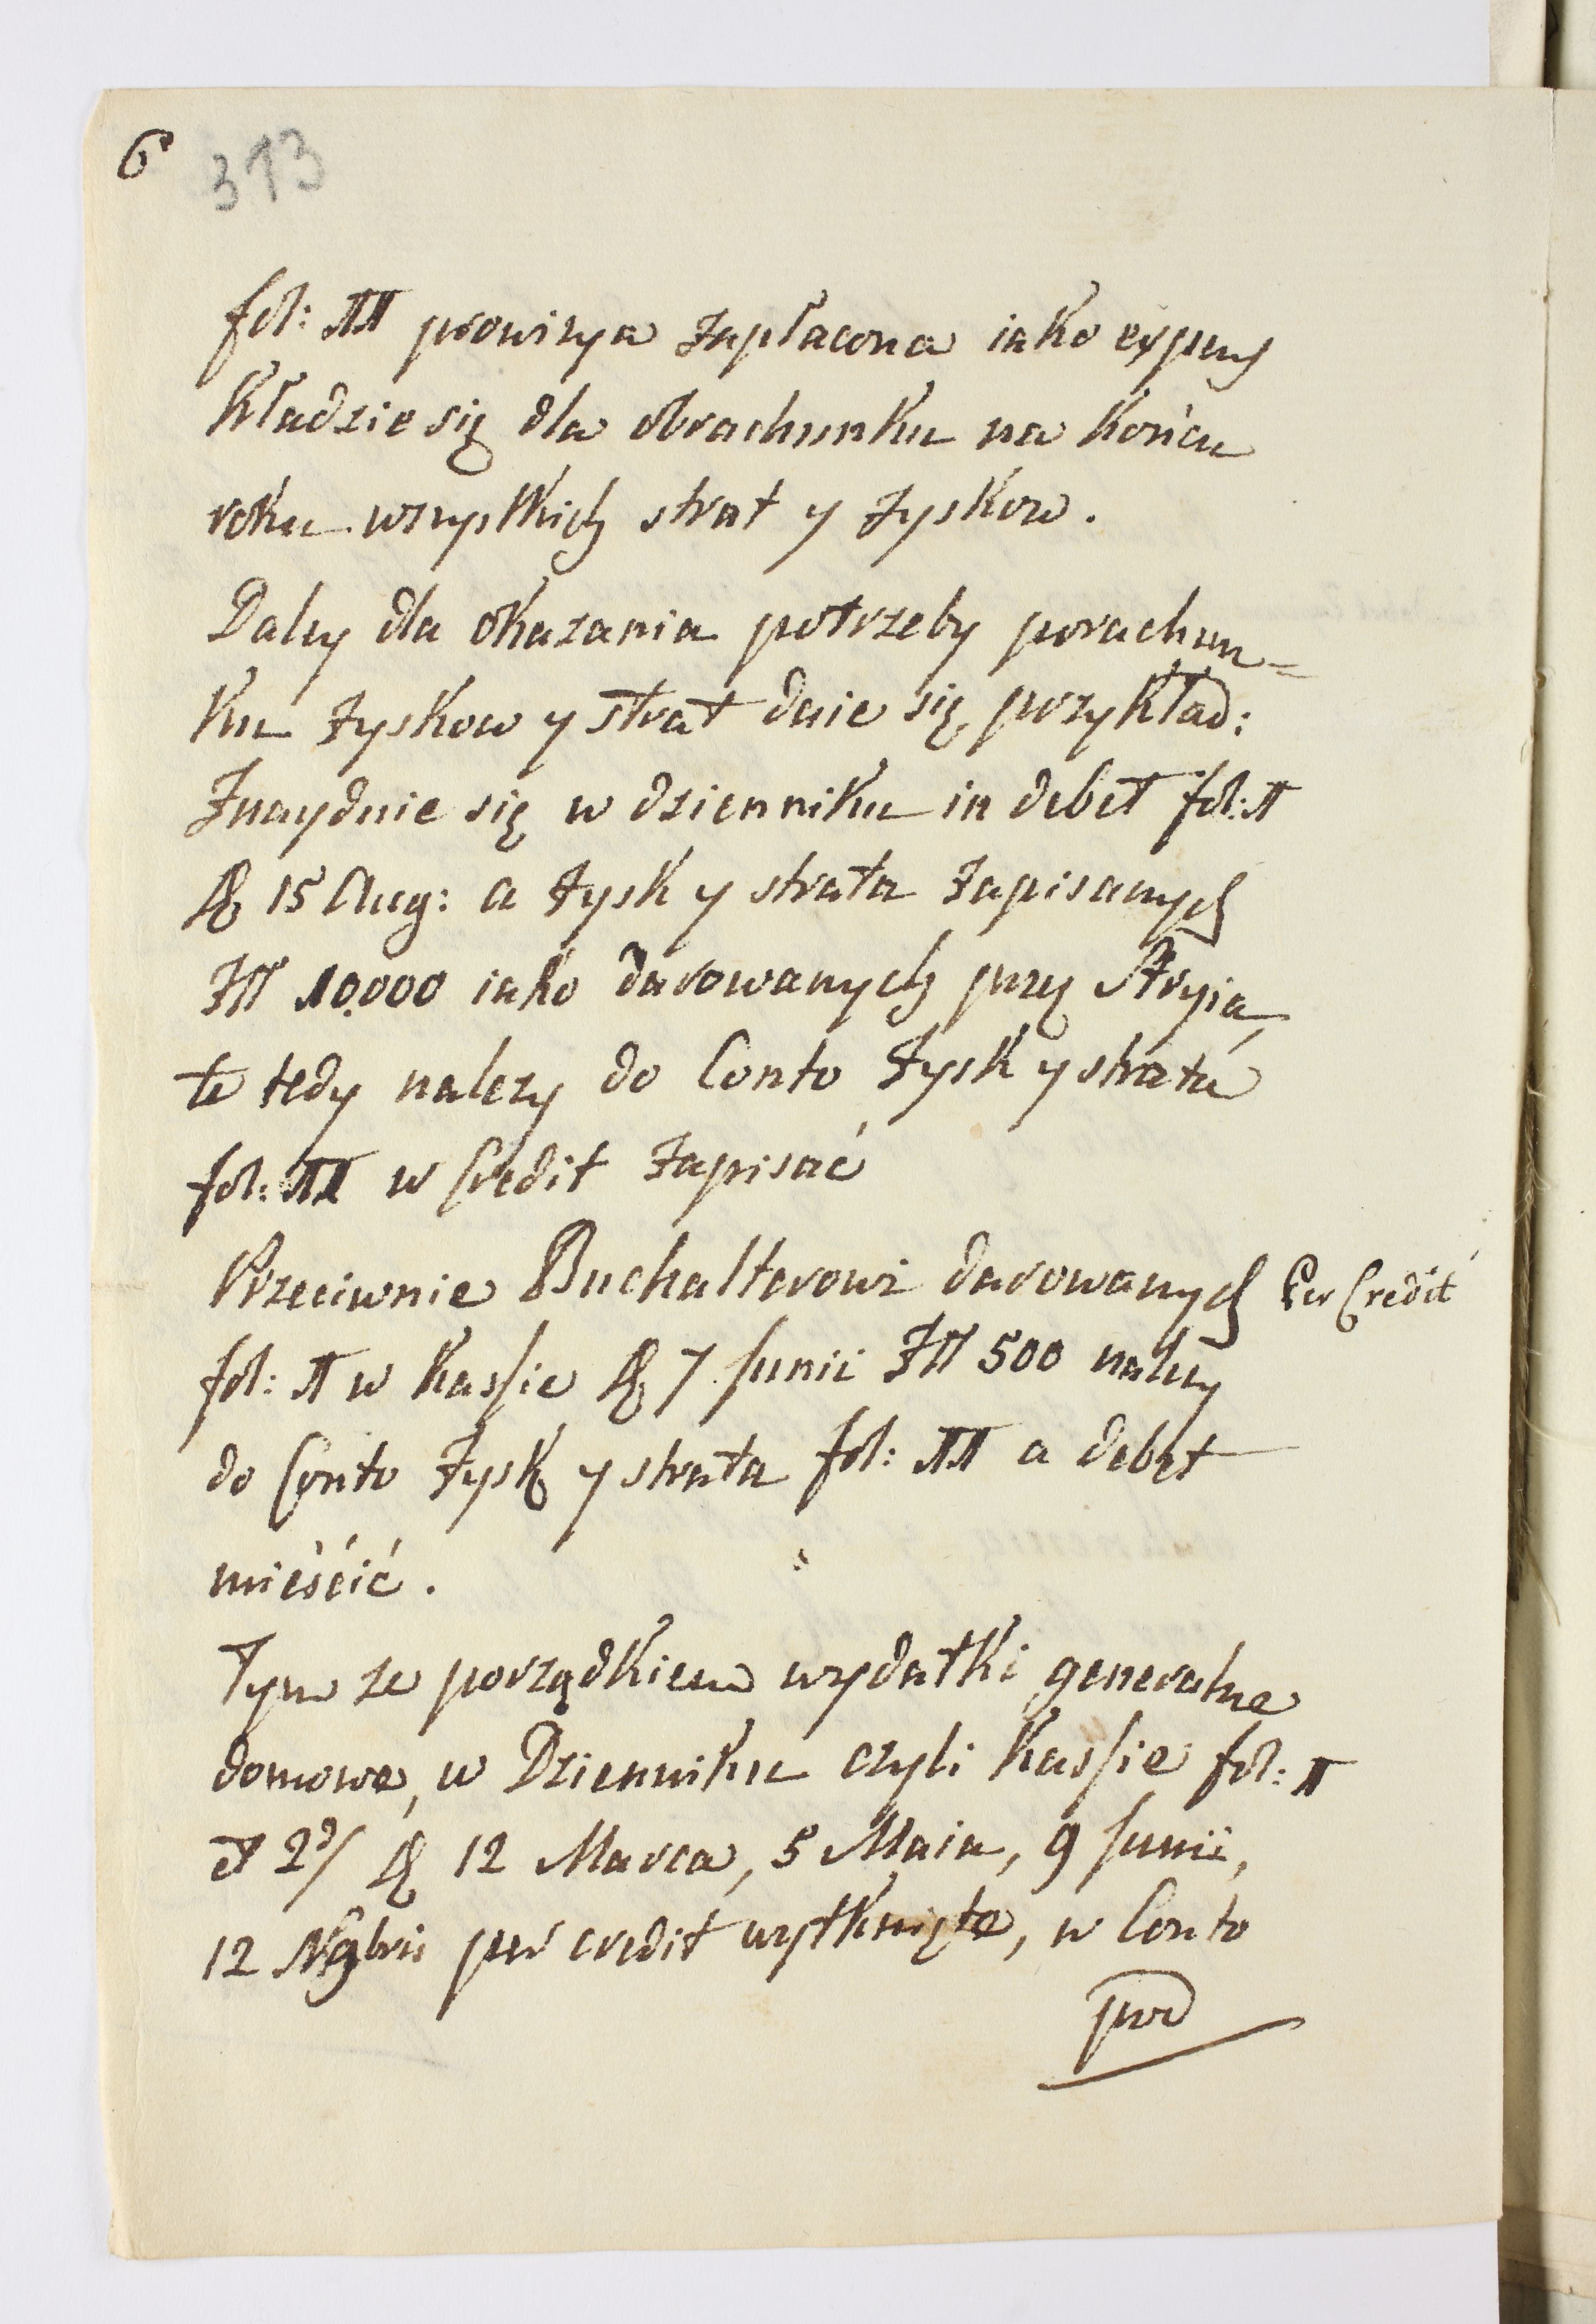 6 313
fol: II prowizya zapłacona iako expens
kładzie się dla obrachunku na końcu
roku wszystkich strat y zyskow.
Daley dla okazania potrzeby porachun=
ku zyskow y strat daie się przykład:
Znayduie się w dzienniku in debet fol: I
15 Aug: a zysk y strata zapisanych
Złł 10.000 iako darowanych przez Stryia
te tedy nalezy do Conto zysk y strata
fol: II w Credit zapisać
Przeciwnie Buchalterowi darowanych Per Credit
fol: I w kassie 7 Junii Złł 500 należy
do Conto zysk y strata fol: II a debet
mieścić.
Tym ze porządkiem wydatki generalne
domowe, w Dzienniku czyli kassie fol: I
et 2 12 Marca, 5 Maia, 9 Junii,
12 9bris per credit wytknięte, w Conto
pod